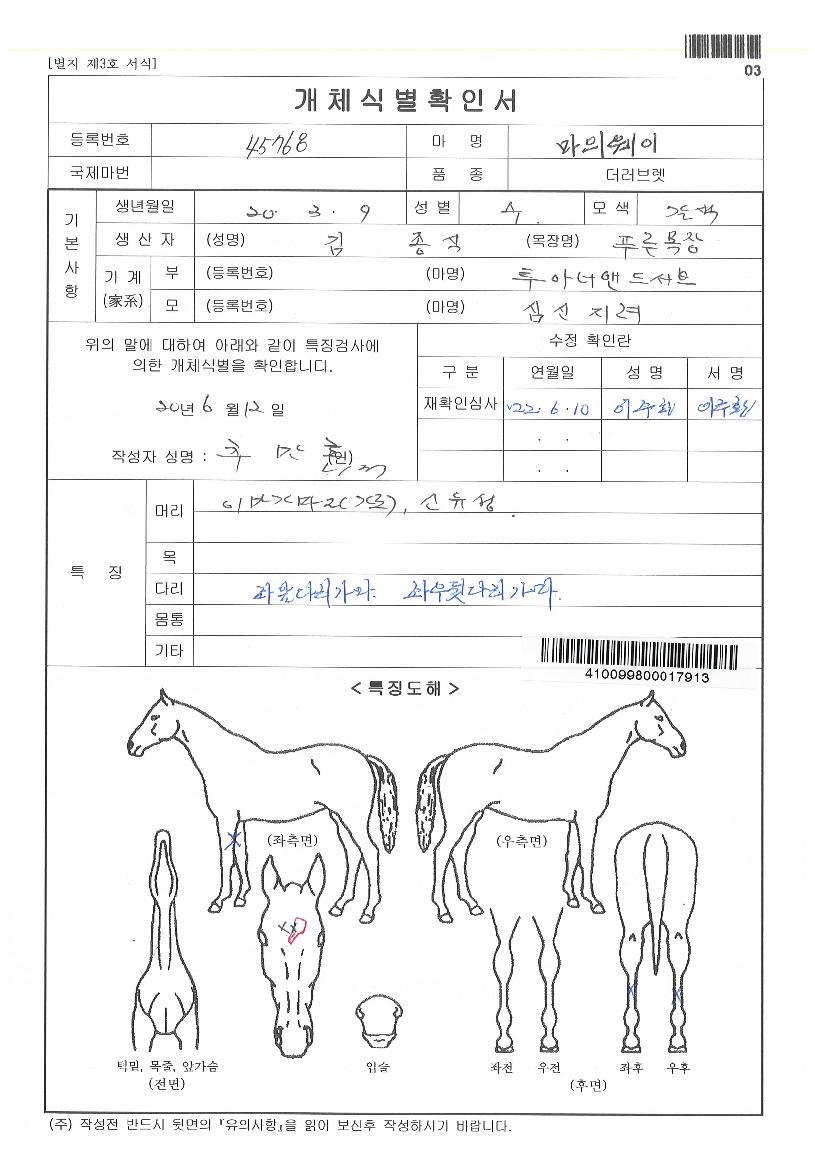 [별지 제3호 서식]
03
개체식별확인서
등록번호 45768 마 명 마의웨이
국제마번 품 종 더러브렛
기본사항
생년월일 20. 3. 9 성별 수 모색
생 산 자 (성명) 김 종식 (목장명) 푸른목장
기계 (家系) 부 (등록번호) (마명) 투아너앤드서브
모 (등록번호) (마명) 심신지려
위의 말에 대하여 아래와 같이 특징검사에
의한 개체식별을 확인합니다.
20년 6월 12일
작성자 성명 : (인)
수정 확인란
구분 연월일 성명 서명
재확인심사 '22. 6. 10
. .
. .
특 징
머리
목
다리 좌앞다리가마. 좌우뒷다리가마.
몸통
기타
410099800017913
< 특징도해 >
(좌측면) (우측면)
턱밑, 목줄, 앞가슴
(전면)
입술
좌전 우전 좌후 우후
(후면)
(주) 작성전 반드시 뒷면의 『유의사항』을 읽어 보신후 작성하시기 바랍니다.